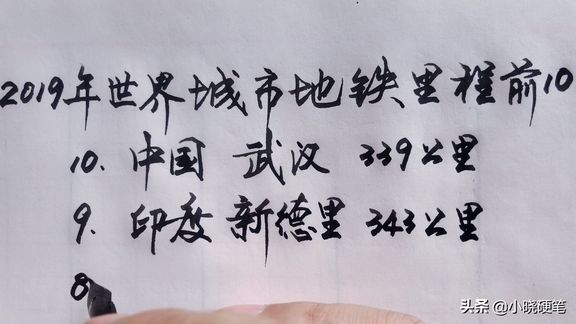 2019年世界城市地铁里程前10
10. 中国 武汉 339公里
9. 印度 新德里 343公里
8
头条 @小晓硬笔